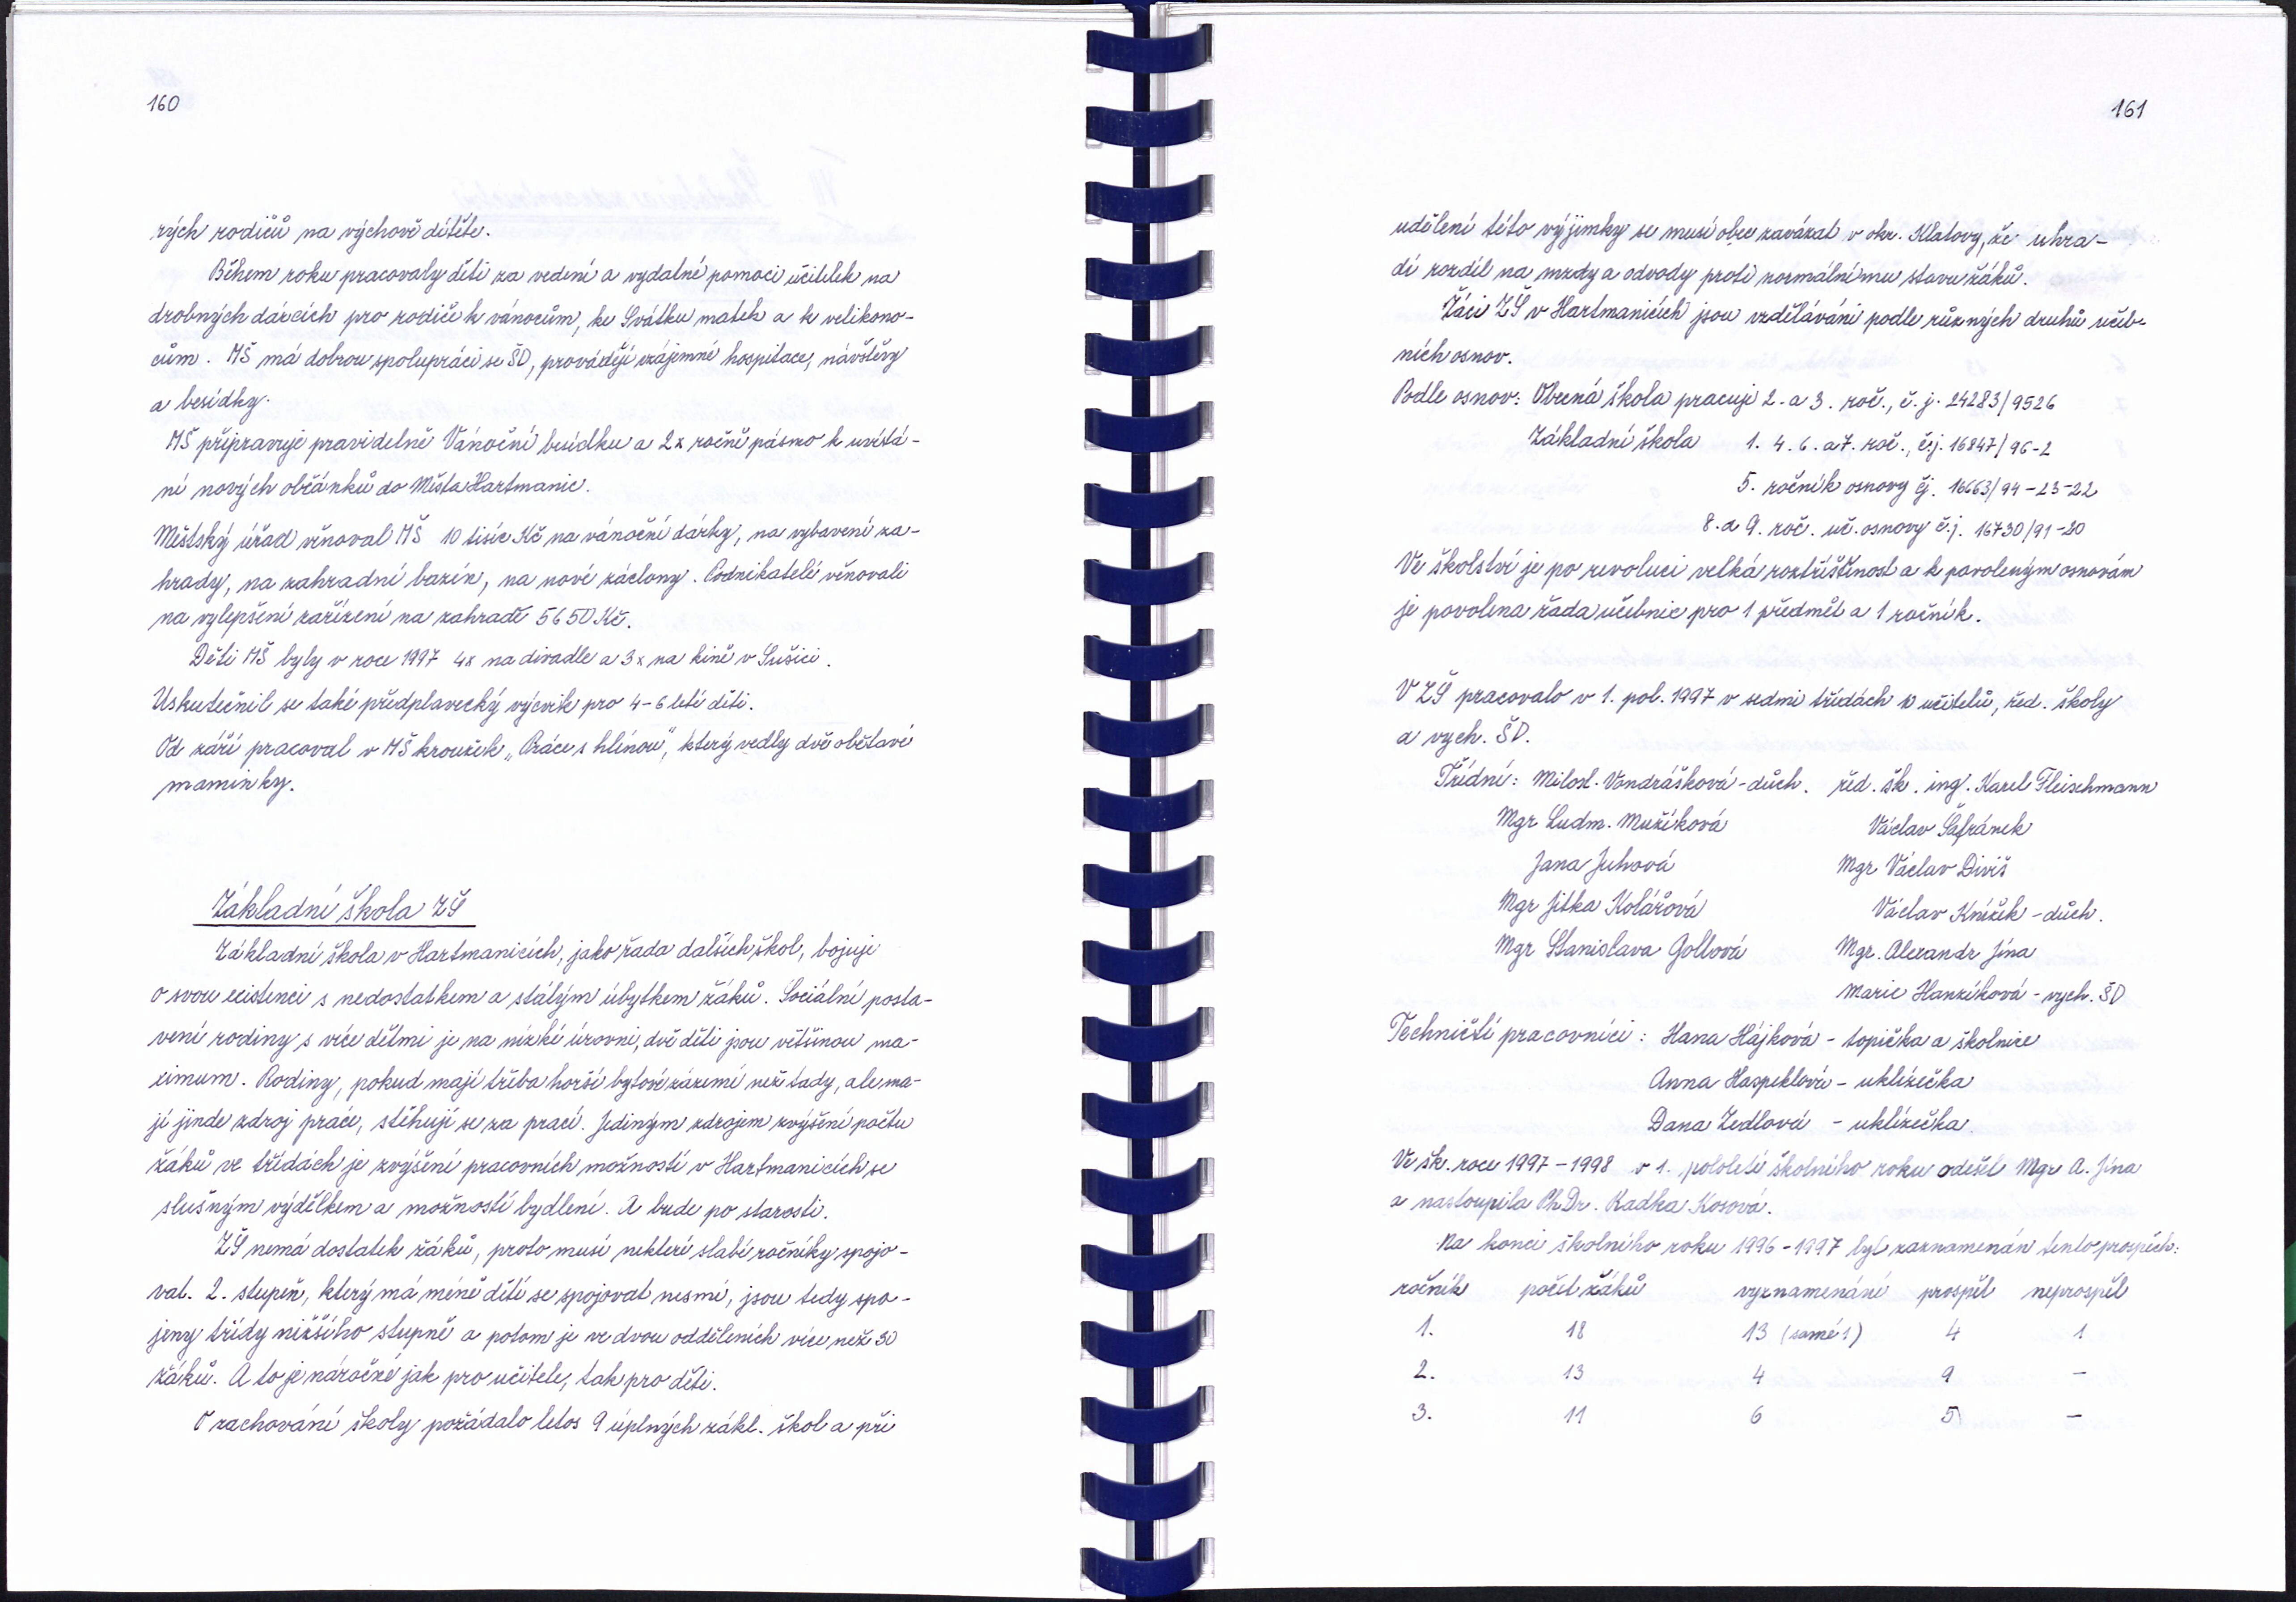 160
rých rodičů na výchově dítěte.
Během roku pracovaly děti za vedení a vydatné pomoci učitelek na
drobných dárcích pro rodiče k vánocům, ke Svátku matek a k velikono-
cům. MŠ má dobrou spolupráci se ŠD, provádějí vzájemné hospitace, návštěvy
a besídky.
MŠ připravuje pravidelně Vánoční besídku a 2x ročně pásmo k uvítá-
ní nových občánků do Města Hartmanic.
Městský úřad věnoval MŠ 10 tisíc Kč na vánoční dárky, na vybavení za-
hrady, na zahradní bazén, na nové záclony. Podnikatelé věnovali
na vylepšení zařízení na zahradě 5650 Kč.
Děti MŠ byly v roce 1997 4x na divadle a 3x na kině v Sušici.
Uskutečnil se také předplavecký výcvik pro 4-6 leté děti.
Od září pracoval v MŠ kroužek „Práce s hlínou", který vedly dvě obětavé
maminky.
Základní škola ZŠ
Základní škola v Hartmanicích, jako řada dalších škol, bojuje
o svou existenci s nedostatkem a stálým úbytkem žáků. Sociální posta-
vení rodiny s více dětmi je na nízké úrovni, dvě děti jsou většinou ma-
ximum. Rodiny, pokud mají třeba horší bytové zázemí než tady, ale ma-
jí jinde zdroj práce, stěhují se za prací. Jediným zdrojem zvýšení počtu
žáků ve třídách je zvýšení pracovních možností v Hartmanicích se
slušným výdělkem a možností bydlení. A bude po starosti.
ZŠ nemá dostatek žáků, proto musí některé slabé ročníky spojo-
vat. 2. stupeň, který má méně dětí se spojovat nesmí, jsou tedy spo-
jeny třídy nižšího stupně a potom je ve dvou odděleních více než 30
žáků. A to je náročné jak pro učitele, tak pro děti.
O zachování školy požádalo letos 9 úplných zákl. škol a při
161
udělení této výjimky se musí obec zavázat v okr. Klatovy, že uhra-
dí rozdíl na mzdy a odvody proti normálnímu stavu žáků.
Žáci ZŠ v Hartmanicích jsou vzděláváni podle různých druhů učeb-
ních osnov.
Podle osnov: Obecná škola pracuje 2. a 3. roč., č.j. 24283/9526
Základní škola 1. 4. 6. a 7. roč., č.j. 16847/96-2
5. ročník osnovy čj. 16663/94-25-22
8. a 9. roč. uč. osnovy č.j. 16730/91-20
Ve školství je po revoluci velká roztříštěnost a k povoleným osnovám
je povolena řada učebnic pro 1 předmět a 1 ročník.
V ZŠ pracovalo v 1. pol. 1997 v sedmi třídách 10 učitelů, řed. školy
a vych. ŠD.
Třídní: Milosl. Vondrášková - důch. řed. šk. ing. Karel Fleischmann
Mgr Ludm. Mužíková Václav Šafránek
Jana Juhová Mgr Václav Diviš
Mgr Jitka Kolářová Václav Knížek - důch.
Mgr Stanislava Gollová Mgr. Alexandr Jína
Marie Hanzíková - vych. ŠD
Techničtí pracovníci: Hana Hájková - topička a školnice
Anna Haspeklová - uklízečka
Dana Zedlová - uklízečka
Ve šk. roce 1997-1998 v 1. pololetí školního roku odešel Mgr A. Jína
a nastoupila PhDr. Radka Kosová.
Na konci školního roku 1996-1997 byl zaznamenán tento prospěch:
ročník počet žáků vyznamenání prospěl neprospěl
1. 18 13 (samé 1) 4 1
2. 13 4 9 -
3. 11 6 5 -